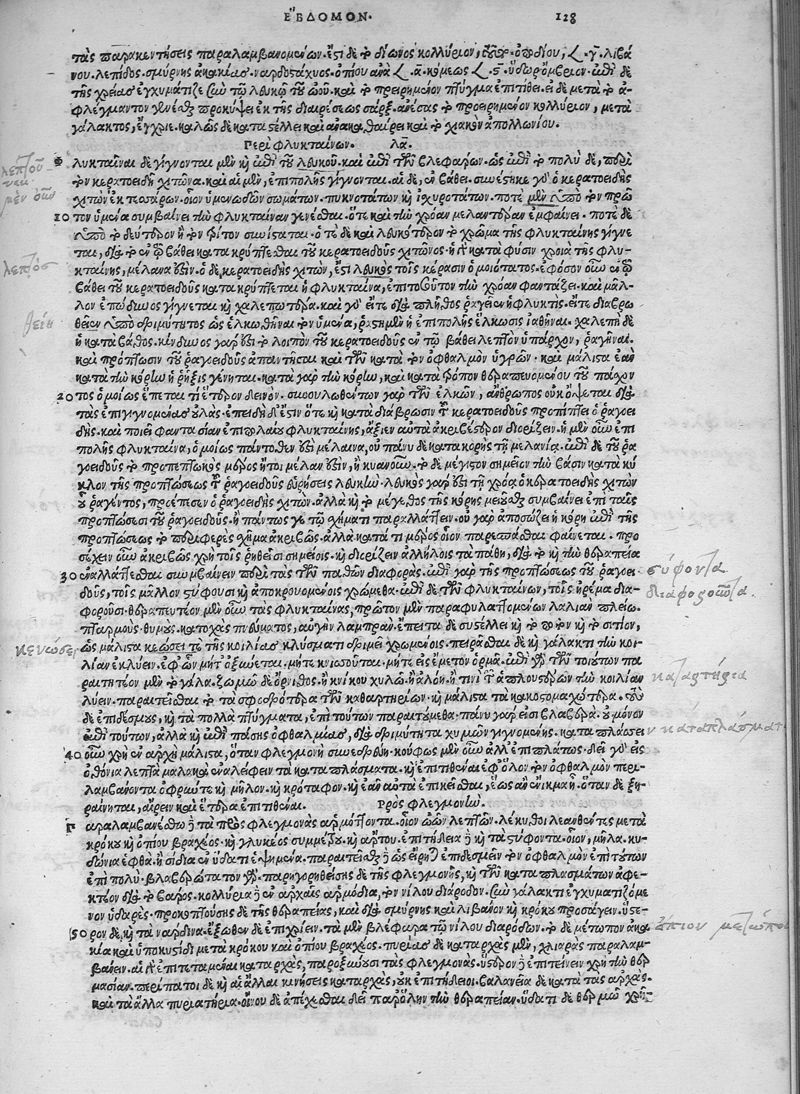 ἝΒΔΟΜΟΝ. 128
τὰς παρακεντήσεις παραλαμβανομένων. ἔστι δὲ τὸ δίωνος κολλύριον, γ. λιβά
νου. λεπίδος. σμύρνης ἀκακίας. ναρδοστάχυος. ὀπίου ἀνὰ α. κόμεως ὕδωρ ὄμβριον. ἐπὶ δὲ
τῆς χρείας ἐγχυμάτιζε σὺν τῷ λευκῷ τοῦ ὠοῦ. καὶ τὸ προειρημένον πτύγμα ἐπιτίθει. εἰ δὲ μετὰ τὸ ἀ-
φλέγμαντον γενέσθαι προκύψει ἐκ τῆς διαιρέσεως σὰρξ. ἀνέσας τὸ προειρημένον κολλύριον, μετὰ
γάλακτος, ἔγχριε. καλῶς δὲ καταστέλλει καὶ ἀνακαθαίρει καὶ τὸ χιακὸν ἀπολλωνίου.
Περὶ φλυκταίνων. λα.
Φ λύκταιναι δὲ γίγνονται μὲν καὶ ἐπὶ τοῦ λευκοῦ. καὶ ἐπὶ τῶν βλεφάρων. ὡς ἐπὶ τὸ πολὺ δὲ, περὶ
τὸν κερατοειδῆ χιτῶνα. καὶ αἱ μὲν, ἐπιπολῆς γίγνονται. αἱ δὲ, ἐν βάθει. συνέστηκε γὰρ ὁ κερατοειδὴς
χιτὼν ἐκ τεσσάρων. οἷον ὑμενωδῶν σωμάτων. πυκνοτάτων καὶ ἰσχυροτάτων. ποτὲ μὲν ὑπὸ τὸν πρῶ
10 τον ὑμένα συμβαίνει τὴν φλύκταιναν γενέσθαι. ὅτε καὶ τὴν χρόαν μελαντέραν ἐμφαίνει. ποτὲ δὲ
ὑπὸ τὸ δεύτερον ἢ τὸν τρίτον συνίσταται. ὅτε δὲ καὶ λευκότερον τὸ χρῶμα τῆς φλυκταίνης γίγνε
ται, διὰ τὸ ἐν τῷ βάθει κατακρύπτεσθαι τοῦ κερατοειδοῦς χιτῶνος. ἡ δὲ κατὰ φύσιν χροιὰ τῆς φλυ-
κταίνης, μέλαινα ἐστίν. ὁ δὲ, κερατοειδὴς χιτὼν, ἐστὶ λευκὸς τοῖς κέρασιν ὁμοιότατος. ἐφόσον οὖν ἐν τῷ
βάθει τοῦ κερατοειδοῦς κατακρύπτεται ἡ φλύκταινα, ἐπὶ τοσοῦτον τὴν χρόαν φαντάζει. καὶ μᾶλ-
λον ἐπώδυνος γίγνεται καὶ χαλεπωτέρα. καὶ γὰρ εἴτε διὰ πλῆθος ῥαγείη ἡ φλυκτὶς. εἴτε διαβρω
θείη ὑπὸ δριμύτητος ὡς ἑλκωθῆναι τὸν ὑμένα, ῥᾴστη μὲν ἡ ἐπιπολῆς ἕλκωσις ἰαθῆναι. χαλεπὴ δὲ
ἡ κατὰ βάθος. κίνδυνος γὰρ ἐστὶ τὸ λοιπὸν τοῦ κερατοειδοῦς ἐν τῷ βάθει λεπτὸν ὑπάρχον, ῥαγῆναι.
καὶ πρόπτωσιν τοῦ ῥαγοειδοῦς ἀπαντῆσαι καὶ τῶν κατὰ τὸν ὀφθαλμὸν ὑγρῶν. καὶ μάλιστα ἐὰν
κατὰ τὴν κόρην ἡ ῥῆξις γένηται. κατὰ γὰρ τὴν κόρην, καὶ κατὰ τρόπον θεραπευομένου τοῦ πάσχον
20 τος ὁμοίως ἕπεταί τι ἕτερον δεινὸν. συνουλωθέντων γὰρ τῶν ἑλκῶν, ἄνθρωπος οὐκ ὄψεται διὰ
τὰς ἐπιγιγνομένας οὐλάς. ἐπειδὴ δὲ ἔστιν ὅτε καὶ κατὰ διάβρωσιν τοῦ κερατοειδοῦς προπίπτει ὁ ῥαγοει
δὴς. καὶ ποιεῖ φαντασίαν ἐπιπολαίου φλυκταίνης, ἄξιον αὐτὰ ἀκριβέστερον διορίζειν. ἡ μὲν οὖν ἐπι
πολῆς φλύκταινα, ὁμοίως πάντοθέν ἐστι μέλαινα, οὐ πάνυ δὲ κατακορὴς τῇ μελανίᾳ. ἐπὶ δὲ τοῦ ῥα
γοειδοῦς τὸ προπεπτωκὸς μέρος ἤτοι μέλαν ἐστὶν, ἢ κυανοῦν. τὸ δὲ μέγιστον σημεῖον τὴν βάσιν κατὰ κύ
κλον τῆς προπτώσεως τοῦ ῥαγοειδοῦς εὑρήσεις λευκὴν. λευκὸς γὰρ ἐστὶ τῇ χρόᾳ ὁ κερατοειδὴς χιτὼν
οὗ ῥαγέντος, προέπεσεν ὁ ῥαγοειδὴς χιτὼν. ἀλλὰ καὶ τὸ μέγεθος τῆς κόρης μειοῦσθαι συμβαίνει ἐπὶ ταῖς
προπτώσεσι τοῦ ῥαγοειδοῦς. ἢ πάντως γε τῷ σχήματι παραλλάττειν. οὐ γὰρ ἀποσώζει ἡ κόρη ἐπὶ τῆς
προπτώσεως τὸ περιφερὲς σχῆμα ἀκριβῶς. ἀλλὰ κατά τι μέρος οἷον παρεσπᾶσθαι φαίνεται. προ
σέχειν οὖν ἀκριβῶς χρὴ τοῖς ῥηθεῖσι σημείοις. καὶ διορίζειν ἀλλήλοις τὰ πάθη, διὰ τὸ καὶ τὴν θεραπεία
30 ἐναλλάττεσθαι συμβαίνειν παρὰ τὰς τῶν παθῶν διαφοράς. ἐπὶ γὰρ τῆς προπτώσεως τοῦ ῥαγοει
δοῦς, τοῖς μᾶλλον στύφουσι καὶ ἀποκρουομένοις χρώμεθα. ἐπὶ δὲ τῶν φλυκταινῶν, τοῖς ἠρέμα δια-
φοροῦσι. θεραπευτέον μὲν οὖν τὰς φλυκταίνας, πρῶτον μὲν παραφυλαττομένων λαλιὰν πλείω.
πταρμοὺς. θυμοὺς. κατοχὰς πνεύματος, αὐγὴν λαμπράν. ἔπειτα δὲ συστέλλει καὶ τὸ ποτὸν καὶ τὸ σιτίον,
ὡς μάλιστα κενώσει τε τῆς κοιλίας κλύσματι δριμεῖ χρωμένοις. πειρᾶσθαι δὲ καὶ γάλακτι τὴν κοι-
λίαν ἐκλύειν. ἐφ' ὧν μήτ' ὀξύνεται. μήτε κνισοῦται. μήτε εἰς ἔμετον ὁρμᾷ. ἐπὶ γὰρ τῶν τοιούτων πα
ραιτητέον μὲν τὸ γάλα. ζωμῷ δὲ ὄρνιθος. ἢ κνίκου χυλῷ. ἢ ἀλόῃ. ἤ τινι τῶν ἁπλουστέρων τὴν κοιλίαν
λύειν. παραιτεῖσθαι τὰ σφοδρότερα τῶν καθαρτηρίων. καὶ μάλιστα τὰ κακοστομαχώτερα. τοὺς
δὲ ἐπιδέσμους, καὶ τὰ πολλὰ πτύγματα, ἐπὶ τούτων παραιτούμεθα. πάνυ γάρ εἰσι βλαβερά. οὐ μόνον
ἐπὶ τούτων, ἀλλὰ καὶ ἐπὶ πάσης ὀφθαλμίας, διὰ δριμύτητα χυμῶν γιγνομένης. καταπλάσσειν
40 οὖν χρὴ ἐν ἀρχῇ μάλιστα, ὅταν φλεγμονὴ συνεδρεύῃ. κούφως μὲν οὖν ἀλλ' ἐπιπλάτως. δεῖ γὰρ εἰς
ὀθόνια λεπτὰ μαλακὰ ἐναλείφειν τὰ καταπλάσματα. καὶ ἐπιτιθέναι ἐφ' ὅλον τὸν ὀφθαλμὸν περι-
λαμβάνοντα ὀφρῦν τε καὶ μῆλον. καὶ κρόταφον. καὶ ἐᾶν αὐτὰ ἐπικεῖσθαι, ἕως ἂν ἔνικμα ᾖ. ὅταν δὲ ξη-
ραίνηται, αἴρειν καὶ ἕτερα ἐπιτιθέναι. Πρὸς φλεγμονήν.
Π αραλαμβανέσθω δὲ τὰ πρὸς φλεγμονὰς ἁρμόττοντα. οἷον ὠῶν λεπτῶν. λέκυθοι λεανθεῖσαι μετὰ
κρόκου καὶ ὀπίου βραχέος. καὶ γλυκέος συμμέτρου. καὶ ἄρτου. ἐπιτήδεια δὲ καὶ τὰ στύφοντα. οἷον, μῆλα. κυ-
δώνια ἑφθὰ. ἢ σίδια ἐν ὕδατι ἑψημένα. παραιτεῖσθαι δὲ ὡς εἴρηται ἐπιδεσμεῖν τὸν ὀφθαλμὸν ἐπὶ τούτων
ἐπὶ πολύ. βλαβερώτατον γάρ. παρηγορηθείσης δὲ τῆς φλεγμονῆς, καὶ τῶν καταπλασμάτων ἀφε-
κτέον διὰ τὸ βάρος. κολλύρια δὲ ἐν ἀρχαῖς ἁρμόδια, τὸν νείλου διάροδον. σὺν γάλακτι ἐγχυματιζόμε
νον ὑδαρές. προκοπτούσης δὲ τῆς θεραπείας, καὶ διὰ σμύρνης καὶ λιβάνου καὶ κρόκου προσάγειν. ὕστε-
50 ρον δὲ, καὶ τὰ νάρδινα. ἔξωθεν δὲ ἐπιχρίειν. τὰ μὲν βλέφαρα τῷ νείλου διαρόδῳ. τὸ δὲ μέτωπον ἀκα
κίᾳ καὶ ὑποκιστίδι μετὰ κρόκου καὶ ὀπίου βραχέος. πυρίας δὲ καταρχὰς μὲν, χλιαρὰς παραλαμ-
βάνειν. αἱ γὰρ ἐπιτεταμέναι καταρχὰς, παροξύνουσι τὰς φλεγμονάς. ὕστερον δὲ ἐπιτείνειν χρὴ τὴν θερ
μασίαν. περίπατοι δὲ καὶ αἱ ἄλλαι κινήσεις καταρχὰς, οὐκ ἐπιτήδειοι. βαλανεῖα δὲ κατὰ τὰς ἀρχὰς.
καὶ τὰ ἄλλα πυριατήρια. οἴνου δὲ ἀπέχεσθαι δεῖ παρ' ὅλην τὴν θεραπείαν. ὕδατι δὲ θερμῷ χρῆ-
λεπτὸς
θείη
στύφοντα
διαφοροῦντα.
κενώσει